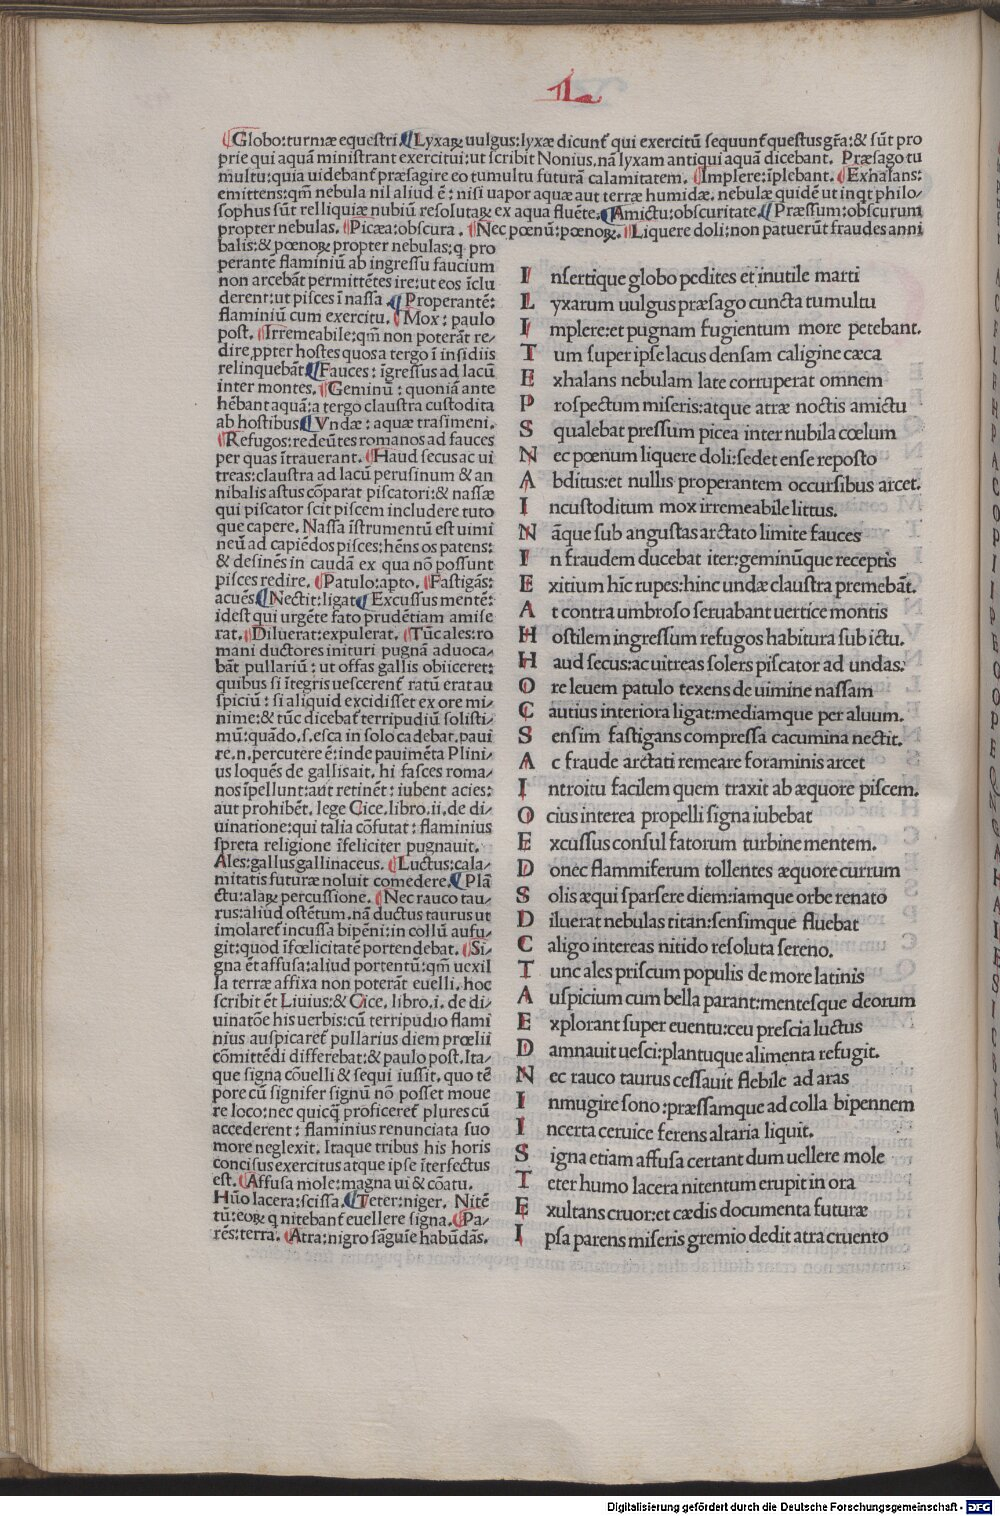 L
¶Globo:turmæ equeſtri.¶Lyxaꝝ uulgus:lyxæ dicunt᷒ qui exercitū ſequunt᷒ queſtus gr̄a:& ſūt pro
prie qui aquā miniſtrant exercitui:ut ſcribit Nonius,nā lyxam antiqui aquā dicebant. Præſago tu
multu:quia uidebant᷒ præſagire eo tumultu futurā calamitatem. ¶Implere:īplebant. ¶Exhalans:
emittens:qm̄ nebula nil aliud ē: niſi uapor aquæ aut terræ humidæ. nebulæ quidē ut inqt philo⸗
ſophus ſūt relliquiæ nubiū reſolutaꝝ ex aqua fluēte.¶Amictu:obſcuritate.¶Præſſum:obſcurum
propter nebulas. ¶Picæa:obſcura. ¶Nec pœnū:pœnoꝝ. ¶Liquere doli:non patuerūt fraudes anni
balis:& pœnoꝝ propter nebulas:q pro
perante flaminiū ab ingreſſu faucium
non arcebāt permittētes ire:ut eos īclu
derent:ut piſces ī naſſa.¶Properantē:
flaminiū cum exercitu. ¶Mox: paulo
poſt. ¶Irremeabile:qm̄ non poterāt re⸗
dire ,ppter hoſtes quos a tergo ī inſidiis
relinquebāt.¶Fauces: īgreſſus ad lacū
inter montes. ¶Geminū: quoniā ante
hēbant aquā:a tergo clauſtra cuſtodita
ab hoſtibus.¶Vndæ: aquæ traſimeni.
¶Refugos:redeūtes romanos ad fauces
per quas ītrauerant. ¶Haud ſecus ac ui
treas:clauſtra ad lacū peruſinum & an
nibalis aſtus cōparat piſcatori:& naſſæ
qui piſcator ſcit piſcem includere tuto
que capere. Naſſa īſtrumentū eſt uimi
neū ad capiēdos piſces:hēns os patens:
& deſinēs in caudā ex qua nō poſſunt
piſces redire. ¶Patulo:apto. ¶Faſtigās:
acuēs.¶Nectit:ligat.¶Excuſſus mentē:
ideſt qui urgēte fato prudētiam amiſe
rat.¶Diluerat:expulerat. ¶Tūc ales:ro
mani ductores inituri pugnā aduoca⸗
bāt pullariū: ut offas gallis obiiceret:
quibus ſi ītegris ueſcerent᷒ ratū erat au
ſpiciū: ſi aliquid excidiſſet ex ore mi⸗
nime:& tūc dicebat᷒ terripudiū ſoliſti⸗
mū:quādo.ſ.eſca in ſolo cadebat.paui
re.n.percutere ē:inde pauimēta Plini⸗
us loquēs de gallis ait. hi faſces roma⸗
nos īpellunt:aut retinēt: iubent acies:
aut prohibēt. lege Cice.libro.ii.de di⸗
uinatione:qui talia cōfutat: flaminius
ſpreta religione īfeliciter pugnauit.
Ales:gallus gallinaceus. ¶Luctus:cala⸗
mitatis futuræ noluit comedere.¶Plā
ctu:alaꝝ percuſſione. ¶Nec rauco tau⸗
rus:aliud oſtētum.nā ductus taurus ut
imolaret᷒ incuſſa bipēni:in collū aufu⸗
git:quod īfœlicitatē portendebat. ¶Si⸗
gna ēt affuſa:aliud portentū:qm̄ uexil
la terræ affixa non poterāt euelli.hoc
ſcribit ēt Liuius:& Cice.libro.i.de di⸗
uinatōe his uerbis:cū terripudio flami
nius auſpicaret᷒ pullarius diem prœlii
cōmittēdi differebat:& paulo poſt.Ita⸗
que ſigna cōuelli & ſequi iuſſit.quo tē
pore cū ſignifer ſignū nō poſſet moue
re loco:nec quicq̄ proficeret᷒ plures cū
accederent: flaminius renunciata ſuo
more neglexit. Itaque tribus his horis
conciſus exercitus atque ipſe īterfectus
eſt. ¶Affuſa mole:magna ui & cōatu.
Hūo lacera:ſciſſa.¶Teter:niger. Nitē
tū:eoꝝ q nitebant᷒ euellere ſigna.¶Pa⸗
rēs:terra. ¶Atra:nigro ſāguīe habūdās.
I nſertique globo pedites et inutile marti
L yxarum uulgus præſago cuncta tumultu
I mplere:et pugnam fugientum more petebant.
T um ſuper ipſe lacus denſam caligine cæca
E xhalans nebulam late corruperat omnem
P roſpectum miſeris:atque atræ noctis amictu
S qualebat preſſum picea inter nubila cœlum
N ec pœnum liquere doli:ſedet enſe repoſto
A bditus:et nullis properantem occurſibus arcet.
I ncuſtoditum mox irremeabile littus.
N āque ſub anguſtas arctato limite fauces
I n fraudem ducebat iter:geminūque receptis
E xitium hīc rupes:hinc undæ clauſtra premebāt.
A t contra umbroſo ſeruabant uertice montis
H oſtilem ingreſſum refugos habitura ſub ictu.
H aud ſecus:ac uitreas ſolers piſcator ad undas:
O re leuem patulo texens de uimine naſſam
C autius interiora ligat:mediamque per aluum.
S enſim faſtigans compreſſa cacumina nectit.
A c fraude arctati remeare foraminis arcet
I ntroitu facilem quem traxit ab æquore piſcem.
O cius interea propelli ſigna iubebat
E xcuſſus conſul fatorum turbine mentem.
D onec flammiferum tollentes æquore currum
S olis æqui ſparſere diem:iamque orbe renato
D iluerat nebulas titan:ſenſimque fluebat
C aligo intereas nitido reſoluta ſereno.
T unc ales priſcum populis de more latinis
A uſpicium cum bella parant:menteſque deorum
E xplorant ſuper euentu:ceu preſcia luctus
D amnauit ueſci:plantuque alimenta refugit.
N ec rauco taurus ceſſauit flebile ad aras
I nmugire ſono:præſſamque ad colla bipennem
I ncerta ceruice ferens altaria liquit.
S igna etiam affuſa certant dum uellere mole
T eter humo lacera nitentum erupit in ora
E xultans cruor:et cædis documenta futuræ
I pſa parens miſeris gremio dedit atra cruento
Digitalisierung gefördert durch die Deutsche Forschungsgemeinschaft - DFG